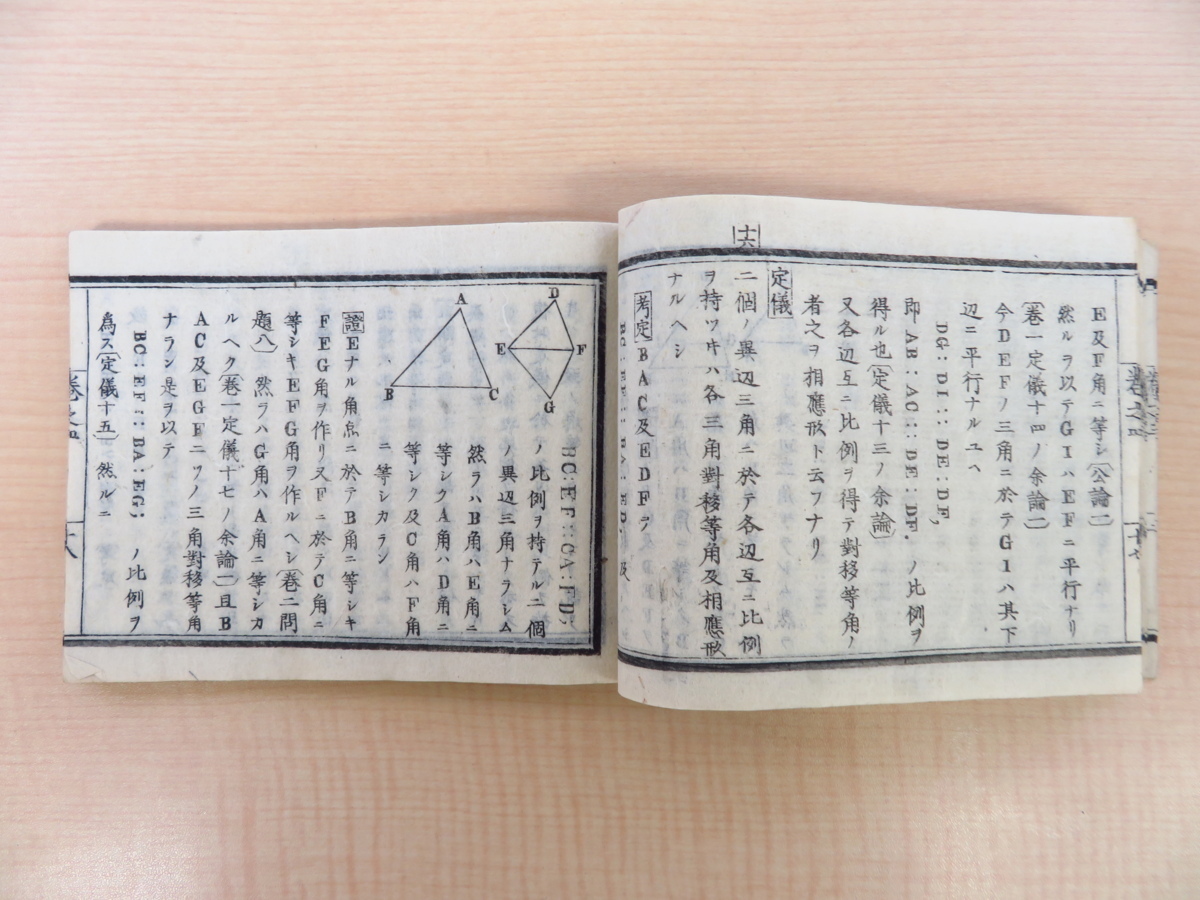 E及F角ニ等シ(公論一)
然ルヲ以テGIハEFニ平行ナリ
(巻一定儀十四ノ余論二)
今DEFノ三角ニ於テGIハ其下
辺ニ平行ナルユヘ
DG:DI::DE:DF,
即AB:AC::DE:DF.ノ比例ヲ
得ル也(定儀十三ノ余論)
又各辺互ニ比例ヲ得テ對移等角ノ
者之ヲ相應形ト云フナリ
十六
定儀
二個ノ異辺三角ニ於テ各辺互ニ比例
ヲ持ツヰハ各三角對移等角及相應形
ナルヘシ
考定BAC及EDFヲ
BC:EF::CA:FD:
ノ比例ヲ持テル二個
ノ異辺三角ナラシム
然ラハB角ハE角ニ
等シクA角ハD角ニ
等シク及C角ハF角
ニ等シカラン
A
B
C
D
E
F
G
證Eナル角点ニ於テB角ニ等シキ
FEG角ヲ作リ又Fニ於テC角ニ
等シキEFG角ヲ作ルヘシ(巻二問
題八)然ラハG角ハA角ニ等シカ
ルヘク(巻一定儀十七ノ余論一)且B
AC及EGF二ツノ三角對移等角
ナラン是ヲ以テ
BC:EF::BA:EG;ノ比例ヲ
爲ス(定儀十五)然ルニ